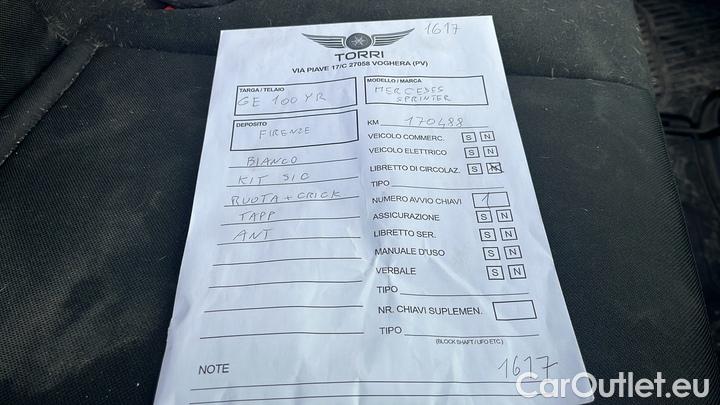 1617
TORRI
VIA PIAVE 17/C 27058 VOGHERA (PV)
TARGA / TELAIO
GE 100 YR
MODELLO / MARCA
MERCEDES
SPRINTER
DEPOSITO
FIRENZE
KM 170488
VEICOLO COMMERC. S N
BIANCO
VEICOLO ELETTRICO S N
KIT SIC
LIBRETTO DI CIRCOLAZ. S N
RUOTA + CRICK
TIPO
TAPP
NUMERO AVVIO CHIAVI 1
ANT
ASSICURAZIONE S N
LIBRETTO SER. S N
MANUALE D'USO S N
VERBALE S N
TIPO
NR. CHIAVI SUPLEMEN.
TIPO
(BLOCK SHAFT / UFO ETC.)
NOTE
1617
CarOutlet.eu